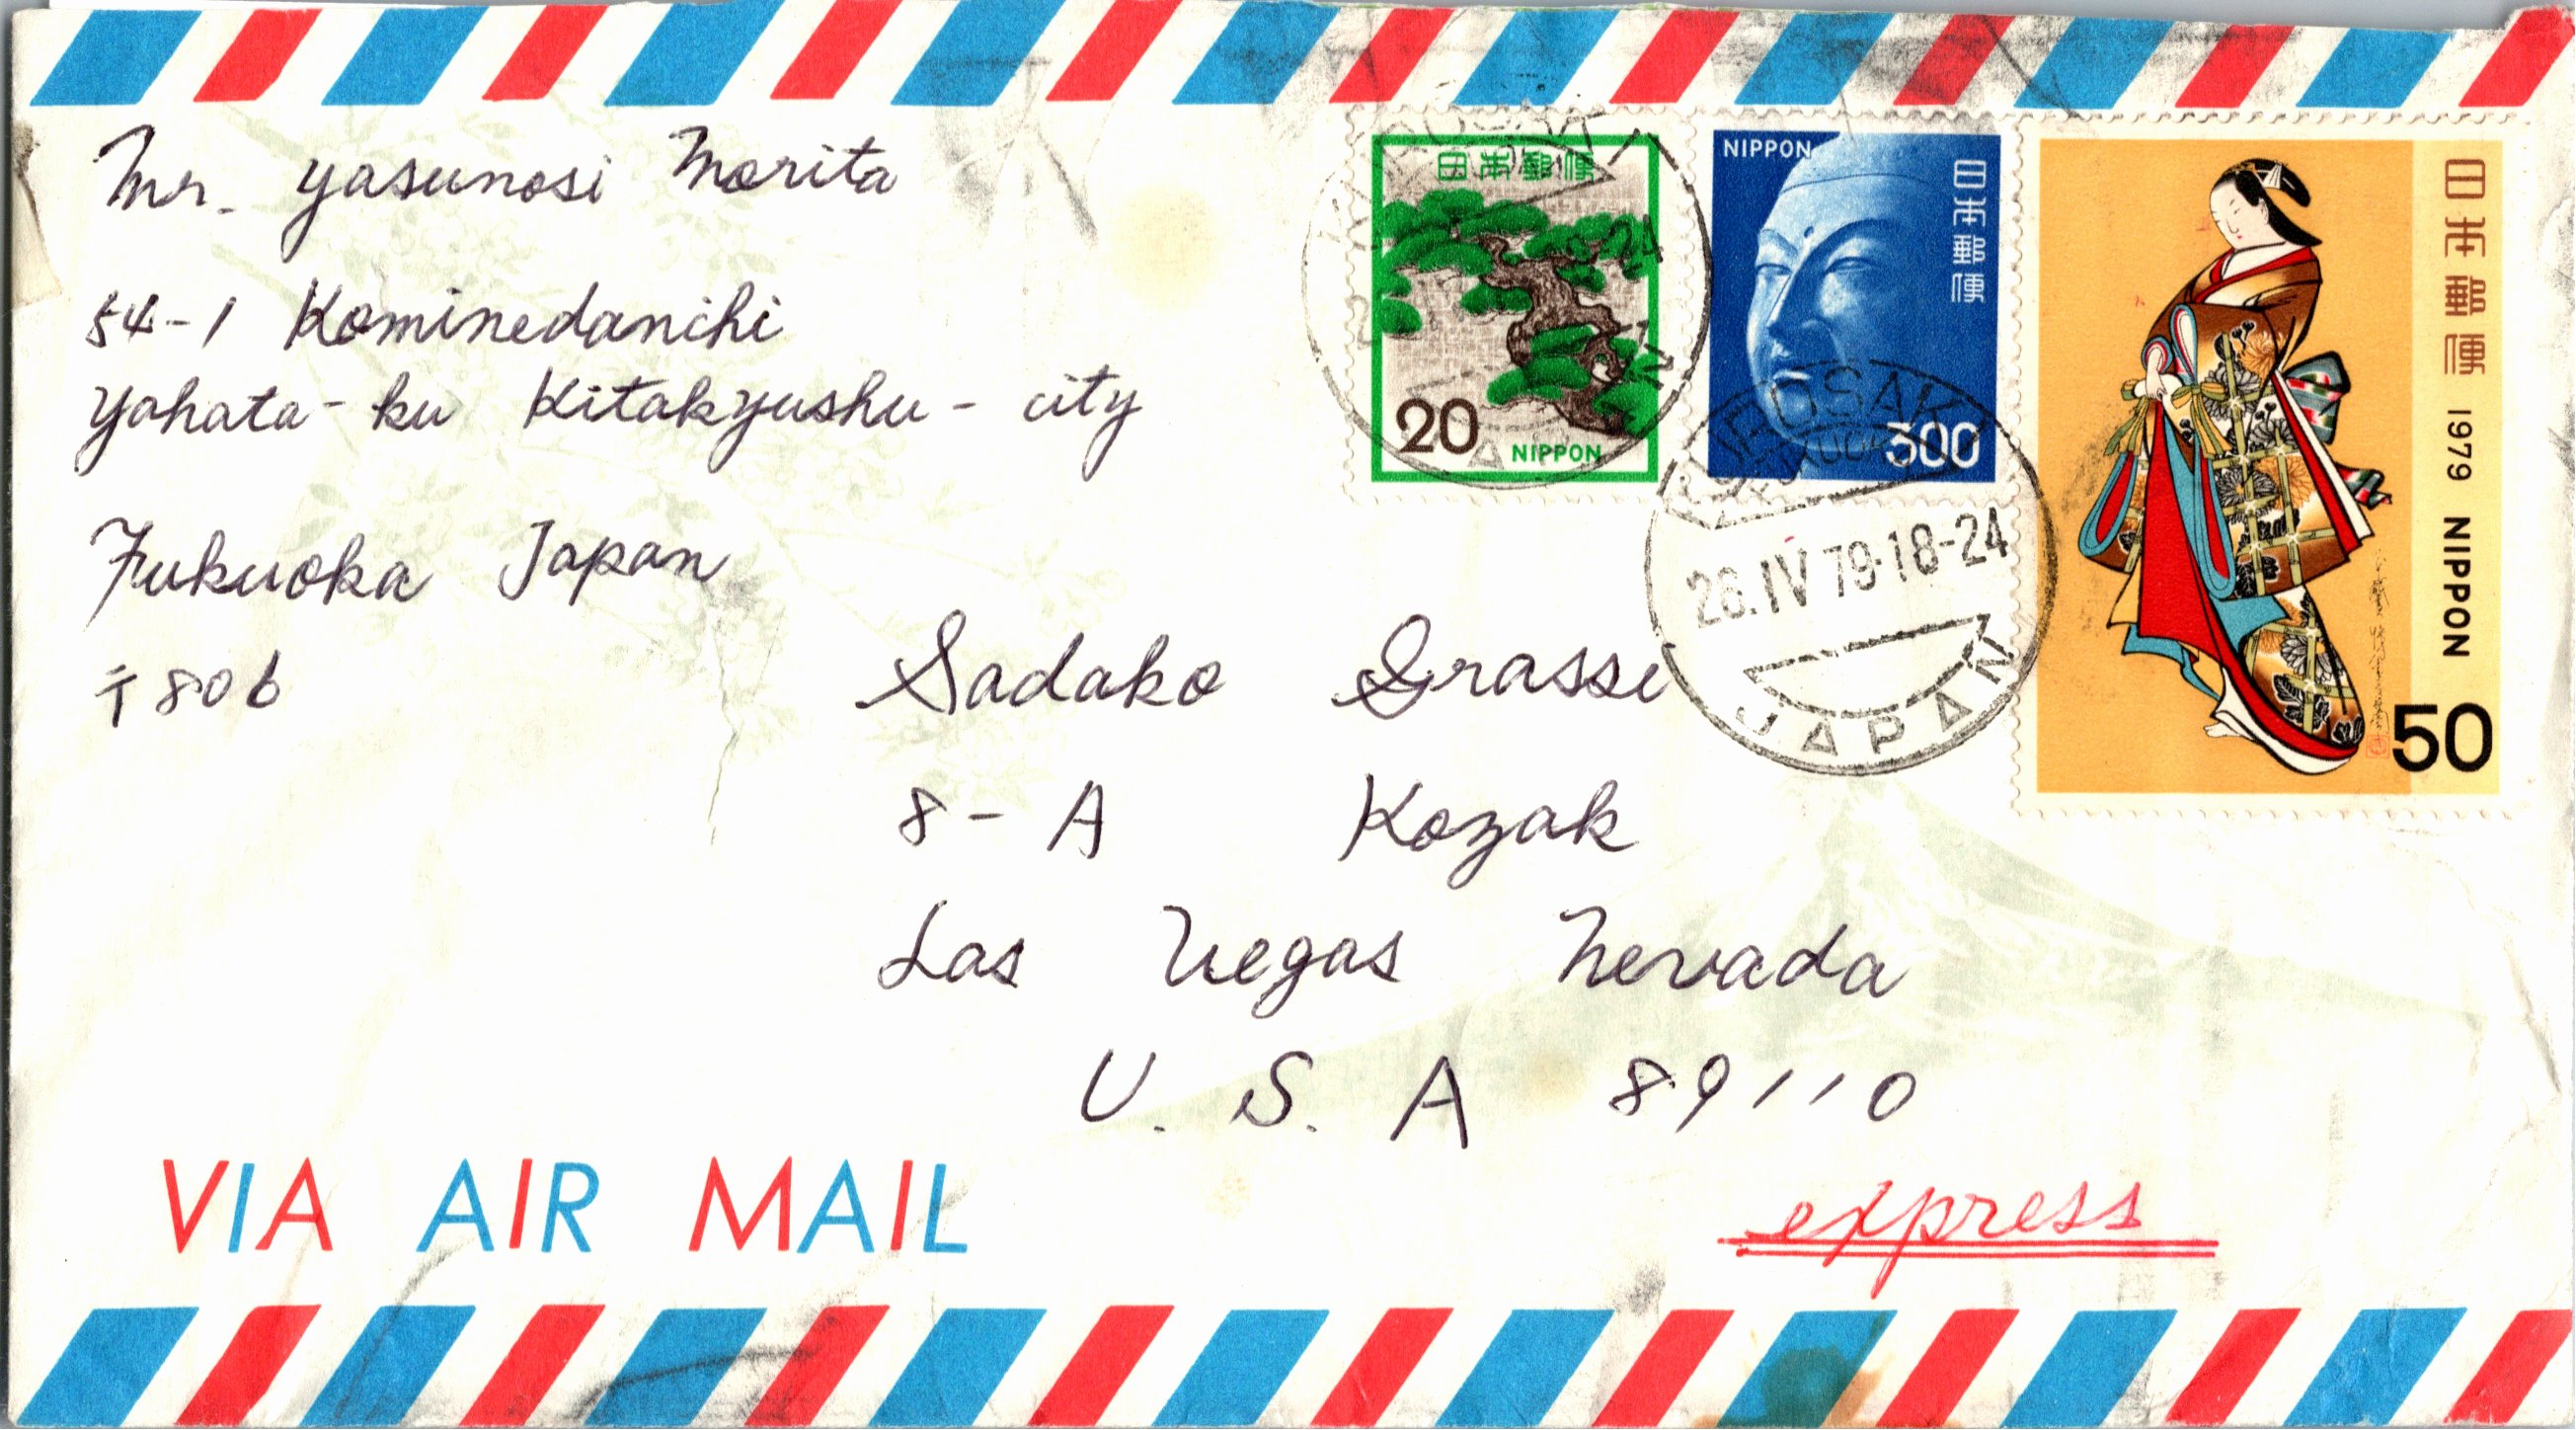 Mr. Yasunosi Morita
54-1 Kominedanchi
Yahata-ku Kitakyushu-city
Fukuoka Japan
〒806
日本郵便
20
NIPPON
NIPPON
日本郵便
300
日本郵便 1979 NIPPON
50
KUROSAKI
26.IV 79.18-24
JAPAN
Sadako Grassi
8-A Kozak
Las Vegas Nevada
U.S.A 89110
VIA AIR MAIL
express